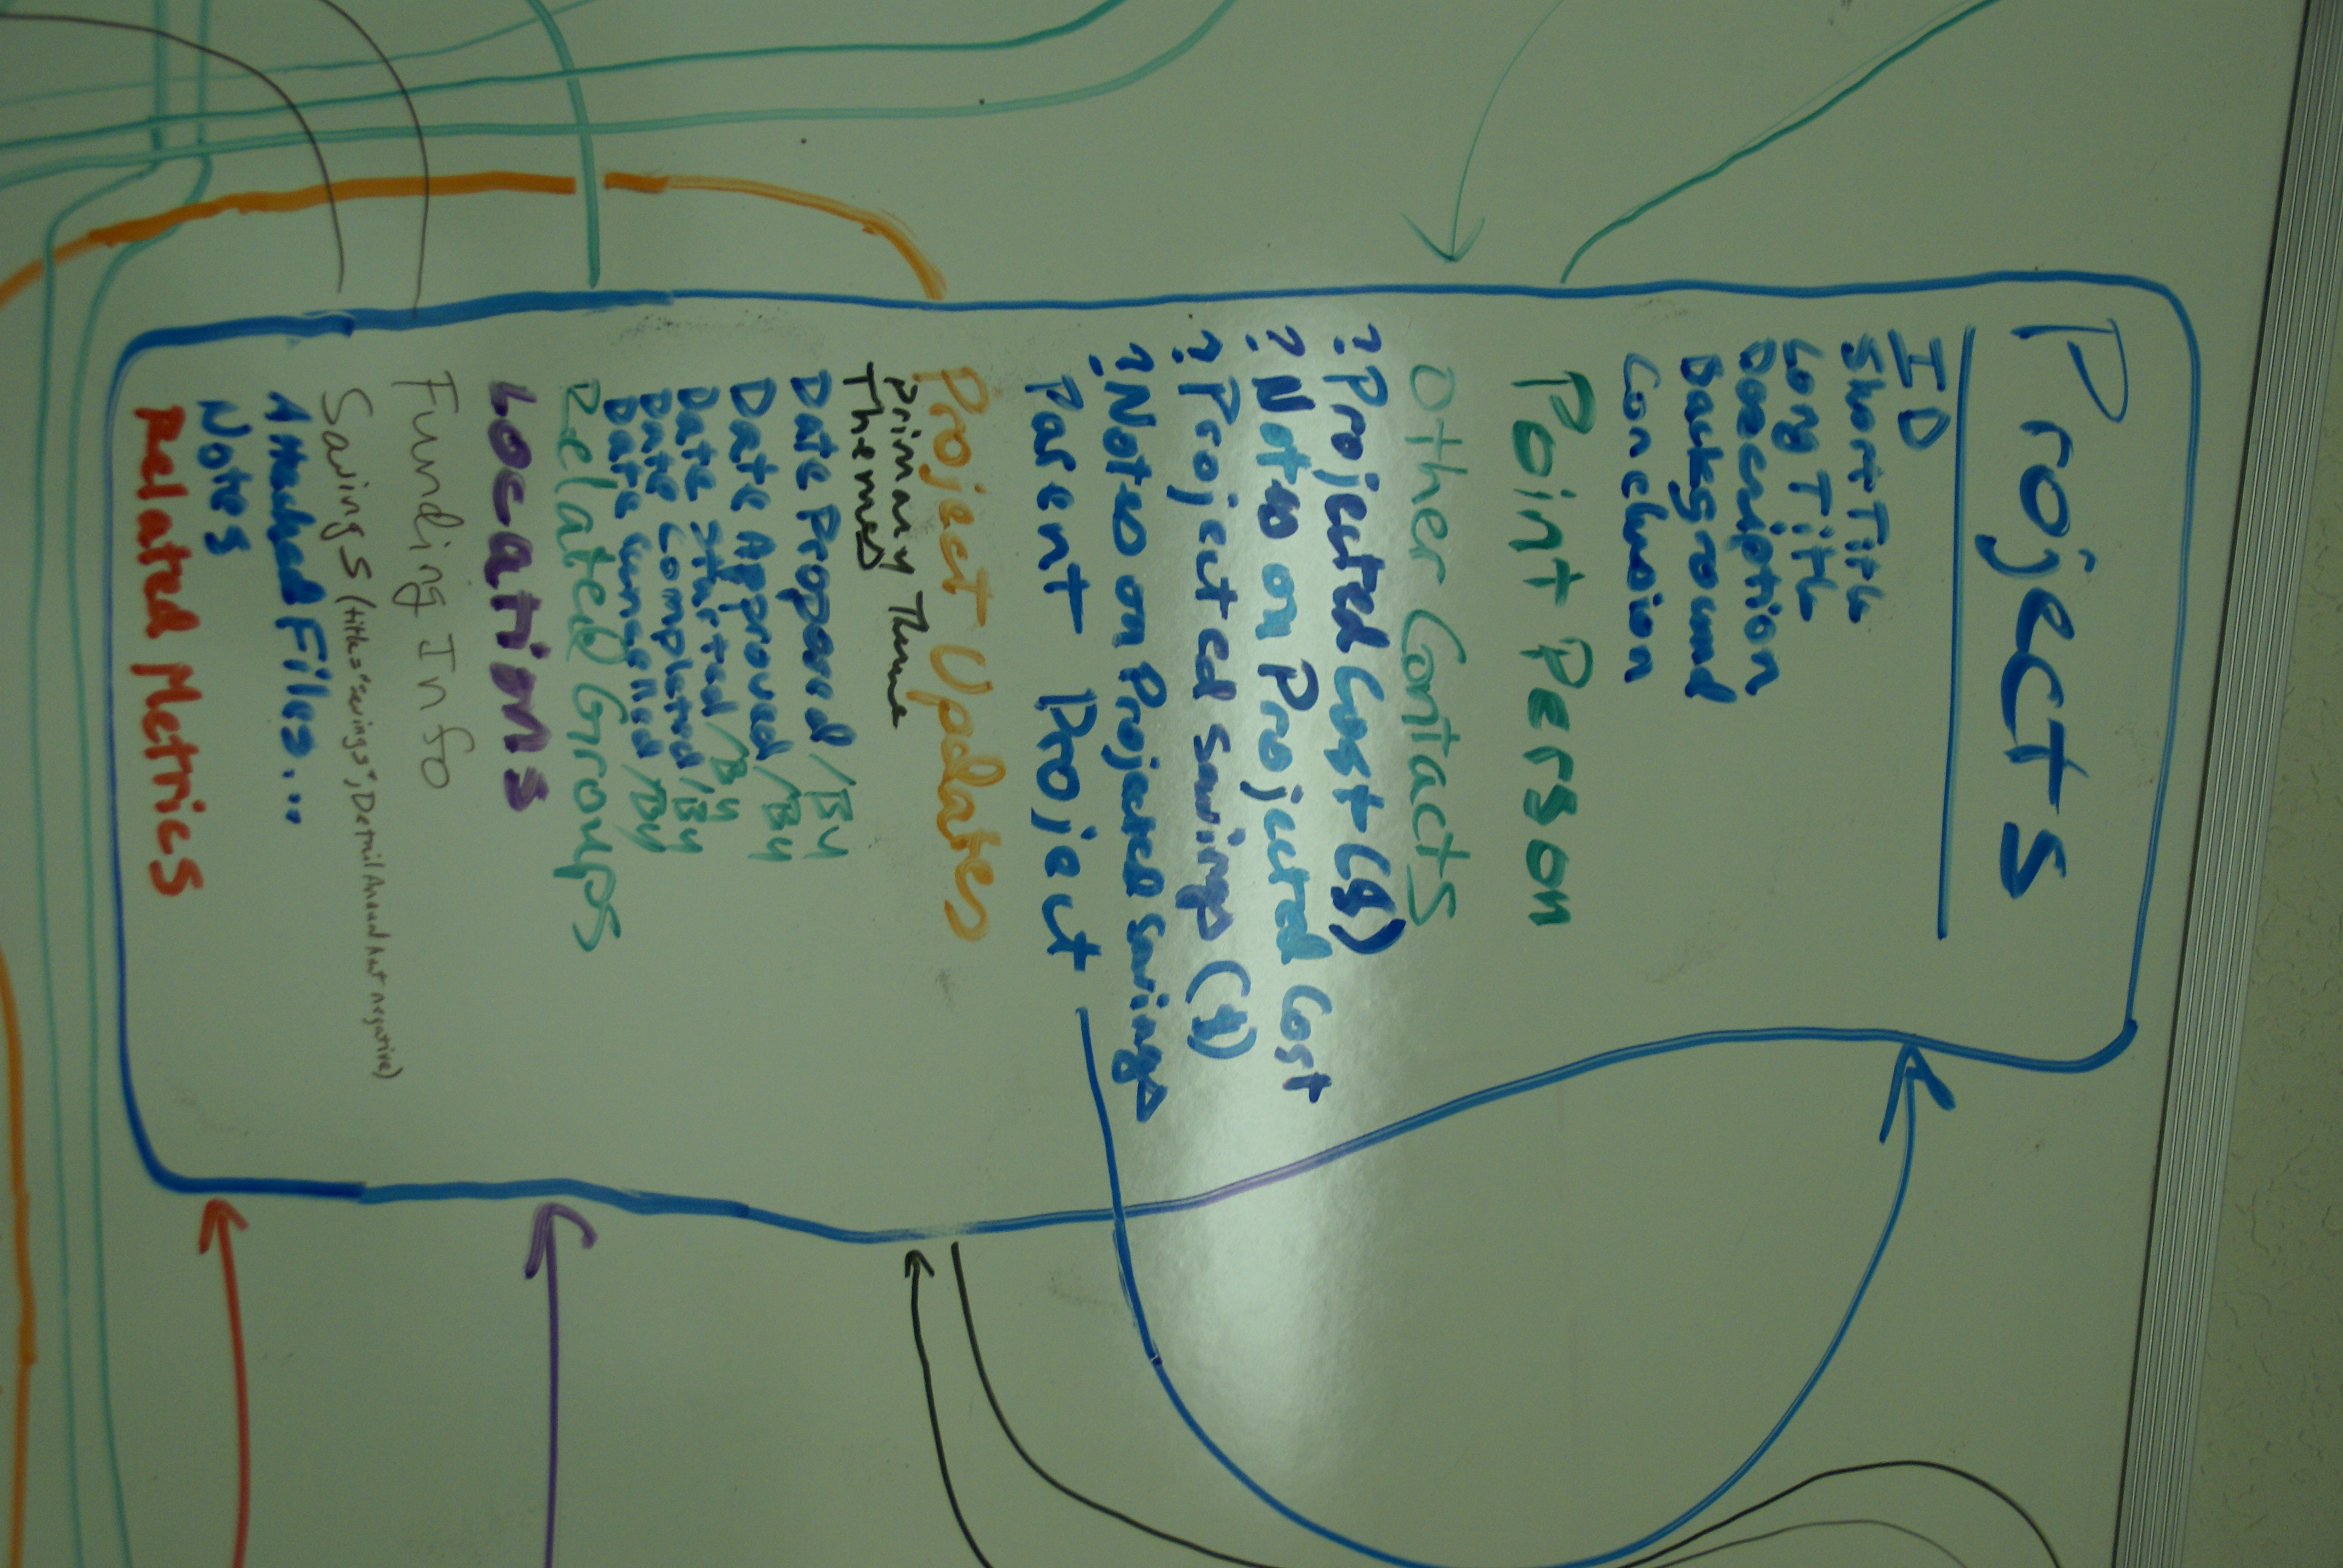 Projects
ID
Short Title
Long Title
Description
Background
Conclusion
Point Person
Other Contacts
? Projected Cost ($)
? Notes on Projected Cost
? Projected Savings ($)
? Notes on Projected Savings
Parent Project
Project Updates
Primary Theme
Themes
Date Proposed /By
Date Approved /By
Date Started /By
Date Completed /By
Date Cancelled /By
Related Groups
Locations
Funding Info
Savings (title="savings", Detail Amt negative)
Attached Files...
Notes
Related Metrics